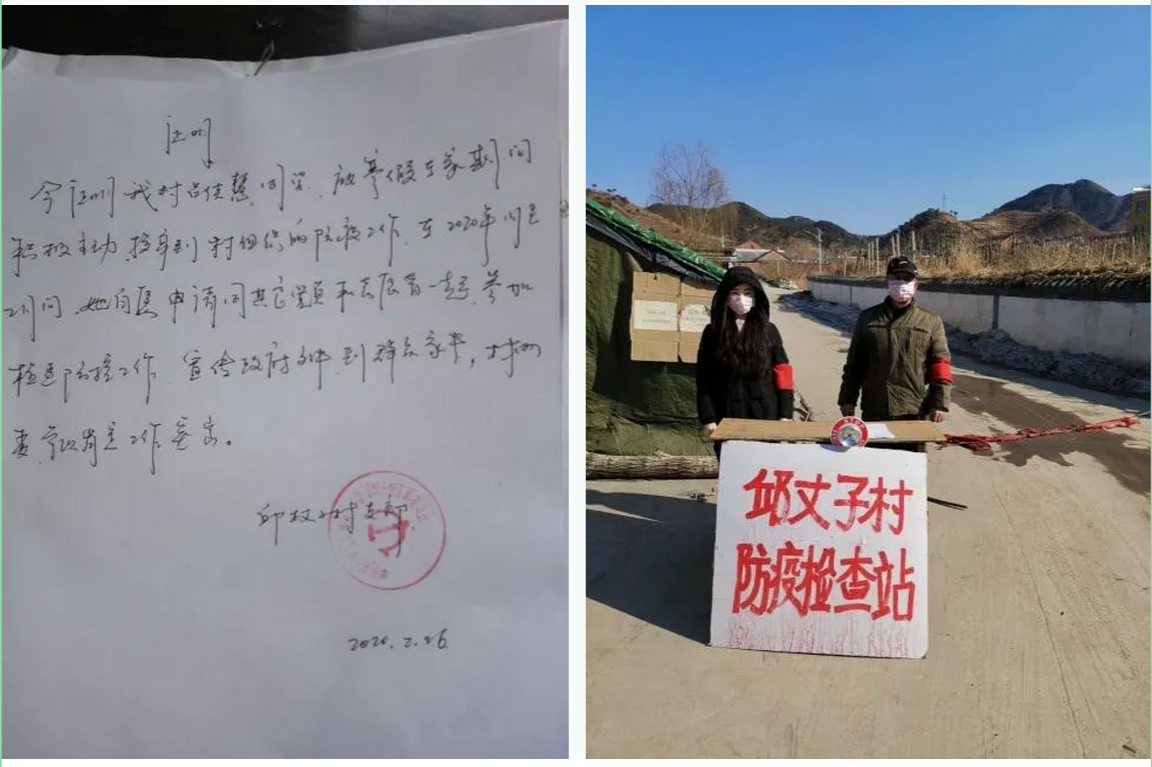 证明
今证明我村吕佳慧同学,放寒假在家期间
积极主动,投身到村组织的防疫工作,在2020年
期间,她自愿申请同其它党员和志愿者一起参加
检查防控工作,宣传政府文件到群众家中,
工作突出。
邱杖子村支部
2020.2.26
邱丈子村
防疫检查站